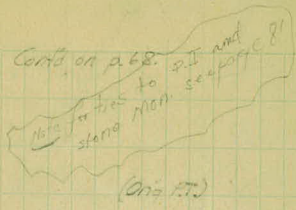 Cont'd on p. 68.
Note for ties to P.I and
stone Mon. see page 81
(Orig F.T.)